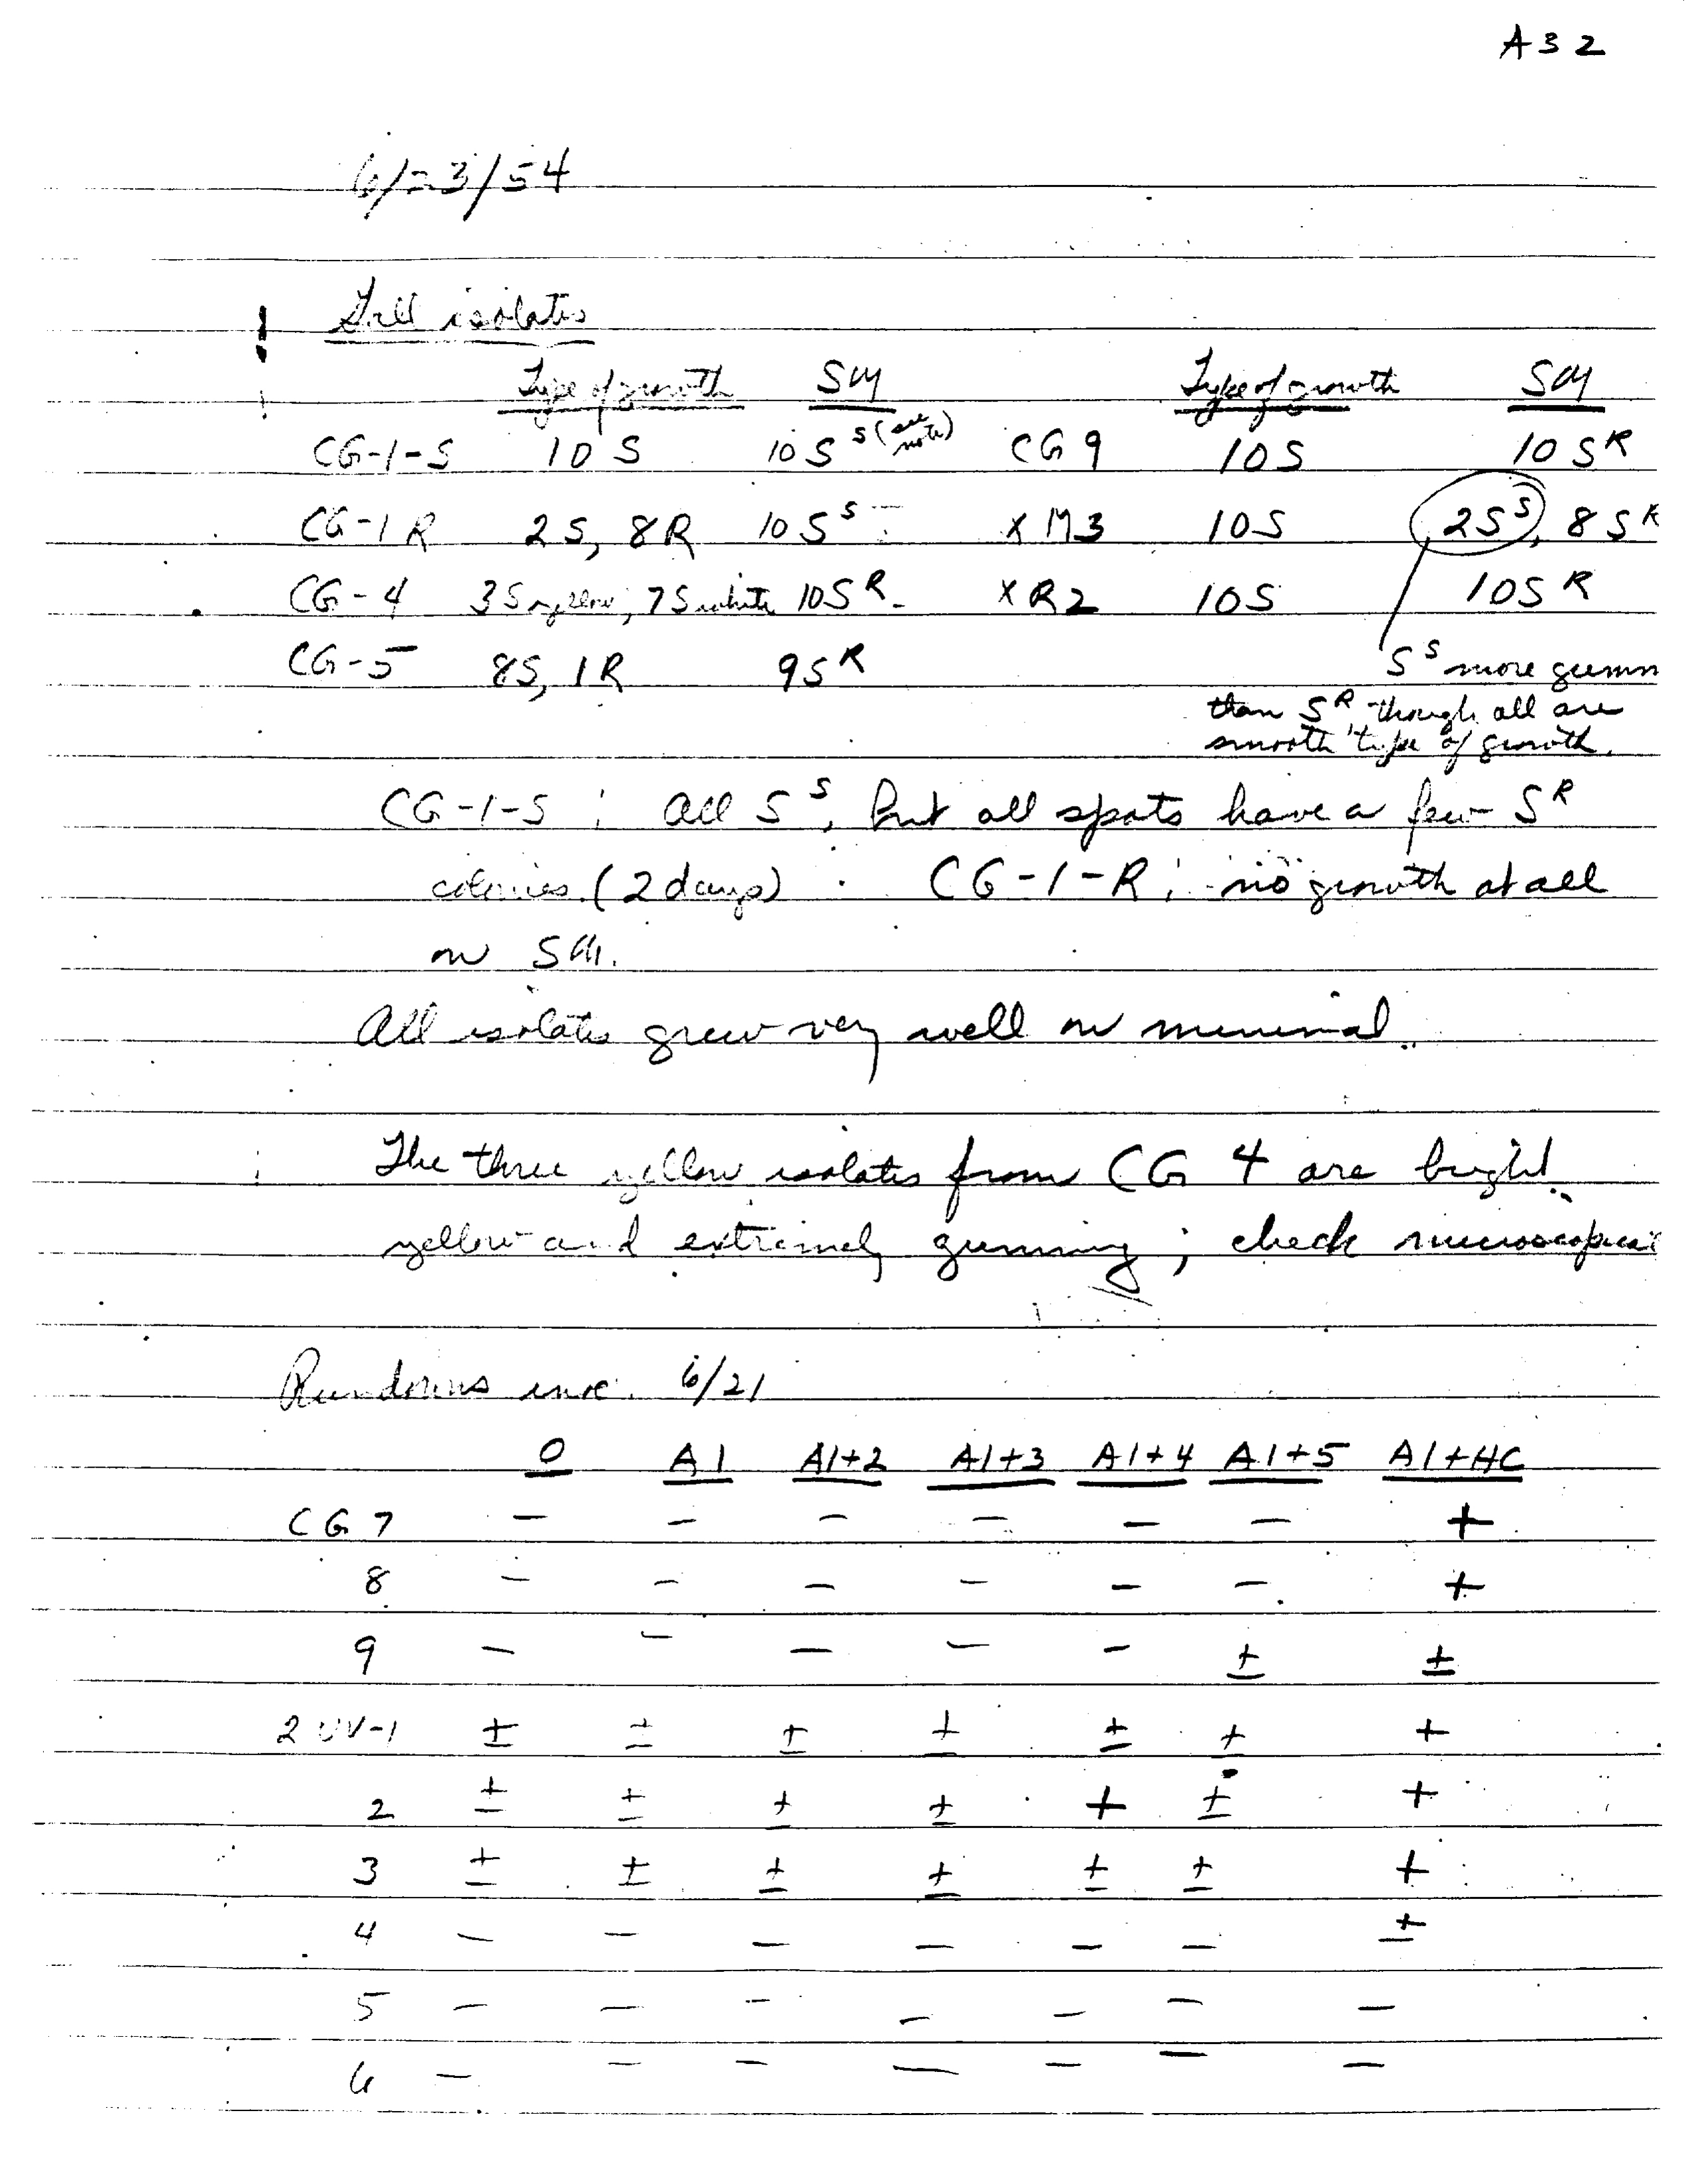 A32
6/23/54
! Gall isolates
Type of growth SM Type of growth SM
CG-1-S 10 S 10 S^S (see note) CG 9 10S 10 S^R
CG-1 R 2S, 8R 10 S^S X M3 10S 2S^S, 8S^R
CG-4 3S yellow, 7S white 10S^R X R2 10S 10S^R
CG-5 8S, 1R 9S^R S^S more gumm
than S^R, though all are
smooth type of growth.
CG-1-S : All S^S, but all spots have a few S^R
colonies (2 days). CG-1-R: no growth at all
on SM.
All isolates grew very well on minimal.
The three yellow isolates from CG 4 are bright
yellow and extremely gummy; check microscopical
Rundowns inoc. 6/21
0 A1 A1+2 A1+3 A1+4 A1+5 A1+HC
CG 7 - - - - - - +
8 - - - - - - +
9 - - - - - ± ±
2 UV-1 ± ± ± ± ± ± +
2 ± ± ± ± + ± +
3 ± ± ± ± ± ± +
4 - - - - - - ±
5 - - - - - - -
6 - - - - - - -